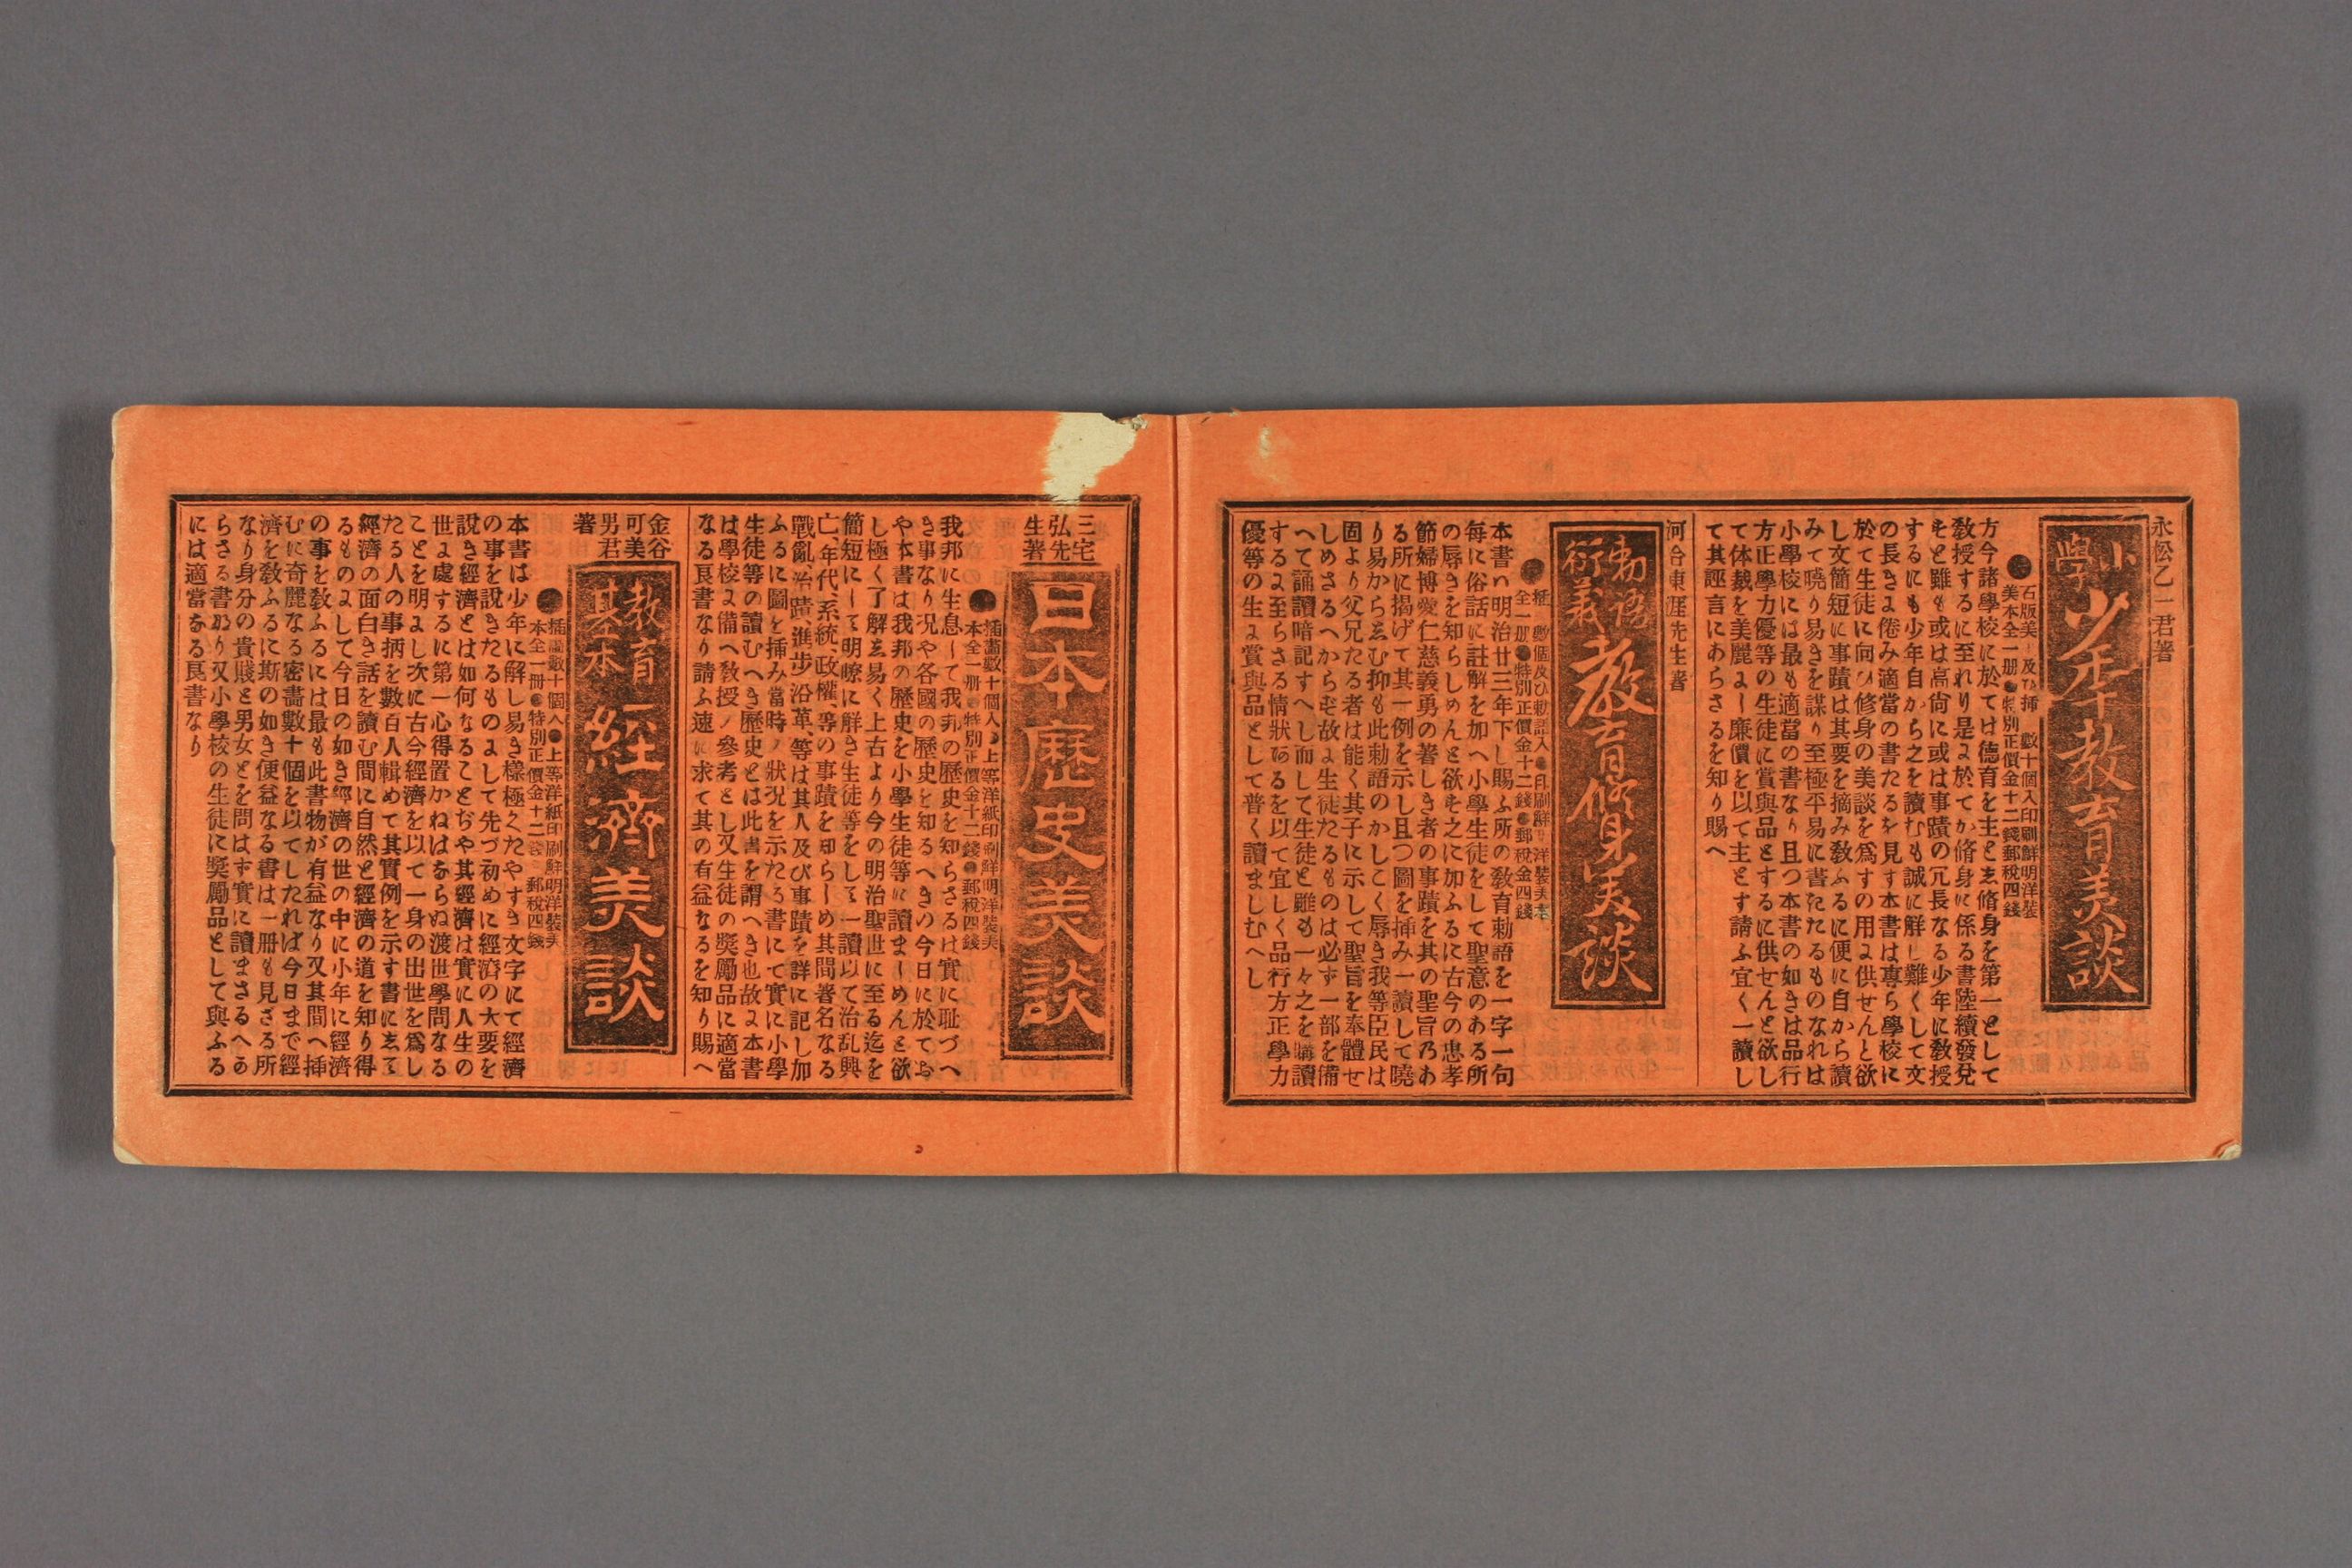 永松乙一君著
小學 少年教育美談
石版美 及ひ挿 數十個入印刷鮮明洋裝
美本全一册●特別正價金十二錢郵税四錢
方今諸學校に於ては德育を主とゑ脩身を第一として
敎授するに至れり是ま於てか脩身に係る書陸續發兌
せと雖も或は高尙に或は事蹟の冗長なる少年に敎授
するにも少年自から之を讀むも誠に解し難くして文
の長きま倦み適當の書たるを見す本書は專ら學校に
於て生徒に向ひ修身の美談を爲すの用ま供せんと欲
し文簡短に事蹟は其要を摘み敎ふるに便に自から讀
みて曉り易きを謀り至極平易に書たたるものなれは
小學校には最も適當の書なり且つ本書の如きは品行
方正學力優等の生徒に賞與品とするに供せんと欲し
て体裁を美麗ま廉價を以て主とす請ふ宜く一讀し
て其誣言にあらさるを知り賜へ
河合東涯先生著
勅語衍義 教育修身美談
數個及ひ勅語入●印刷鮮 洋裝美本
全一册●特別正價金十二錢●郵税金四錢
本書ハ明治廿三年下し賜ふ所の敎育勅語を一字一句
每に俗話に註解を加へ小學生徒をして聖意のある所
の辱きを知らしめんと欲そ之に加ふるに古今の忠孝
節婦博愛仁慈義勇の著しき者の事蹟を其の聖旨乃あ
る所に揭げて其一例を示し且つ圖を挿み一讀して曉
り易からゑむ抑も此勅語のかしこく辱き我等臣民は
固より父兄たる者は能く其子に示して聖旨を奉體せ
しめさるへからず故ま生徒たるものは必ず一部を備
へて誦讀暗記すへし而して生徒と雖も一々之を購讀
するま至らさる情狀あるを以て宜しく品行方正學力
優等の生ま賞與品として普く讀ましむへし
三宅弘先生著
日本歷史美談
挿畵數十個入●上等洋紙印刷鮮明洋裝美
本全一册●特別正價金十二錢●郵税四錢
我邦に生息して我邦の歷史を知らさるは實に耻づへ
き事なり况や各國の歷史を知るへきの今日に於てお
や本書は我邦の歷史を小學生徒等に讀ましめんと欲
し極く了解ゑ易く上古より今の明治聖世に至る迄を
簡短にして明瞭に解き生徒等をして一讀以て治乱興
亡、年代、系統、政權、等の事蹟を知らしめ其間著名なる
戰亂、治蹟、進步沿革、等は其人及び事蹟を詳に記し加
ふるに圖を挿み當時ノ狀况を示たる書にて實に小學
生徒等の讀むへき歷史とは此書を謂へき也故ま本書
は學校ま備へ敎授ノ參考とし又生徒の奬勵品に適當
なる良書なり請ふ速に求て其の有益なるを知り賜へ
金谷可美男君著
教育基本 經濟美談
挿畵數十個入●上等洋紙印刷鮮明洋裝美
本全一册●特別正價金十二錢 郵税四錢
本書は少年に解し易き樣極くたやすき文字にて經濟
の事を說きたるものまして先づ初めに經濟の大要を
說き經濟とは如何なることぢや其經濟は實に人生の
世ま處するに第一心得置かねはならぬ渡世學問なる
ことを明まし次に古今經濟を以て一身の出世を爲し
たる人の事柄を數百人輯めて其實例を示す書にゑて
經濟の面白き話を讀む間に自然と經濟の道を知り得
るものまして今日の如き經濟の世の中に小年に經濟
の事を敎ふるには最も此書物が有益なり又其間へ挿
むに奇麗なる密畵數十個を以てしたれば今日まで經
濟を敎ふるに斯の如き便益なる書は一册も見ざる所
なり身分の貴賤と男女とを問はず實に讀まさるへゐ
らさる書なり又小學校の生徒に奬勵品として與ふる
には適當なる良書なり